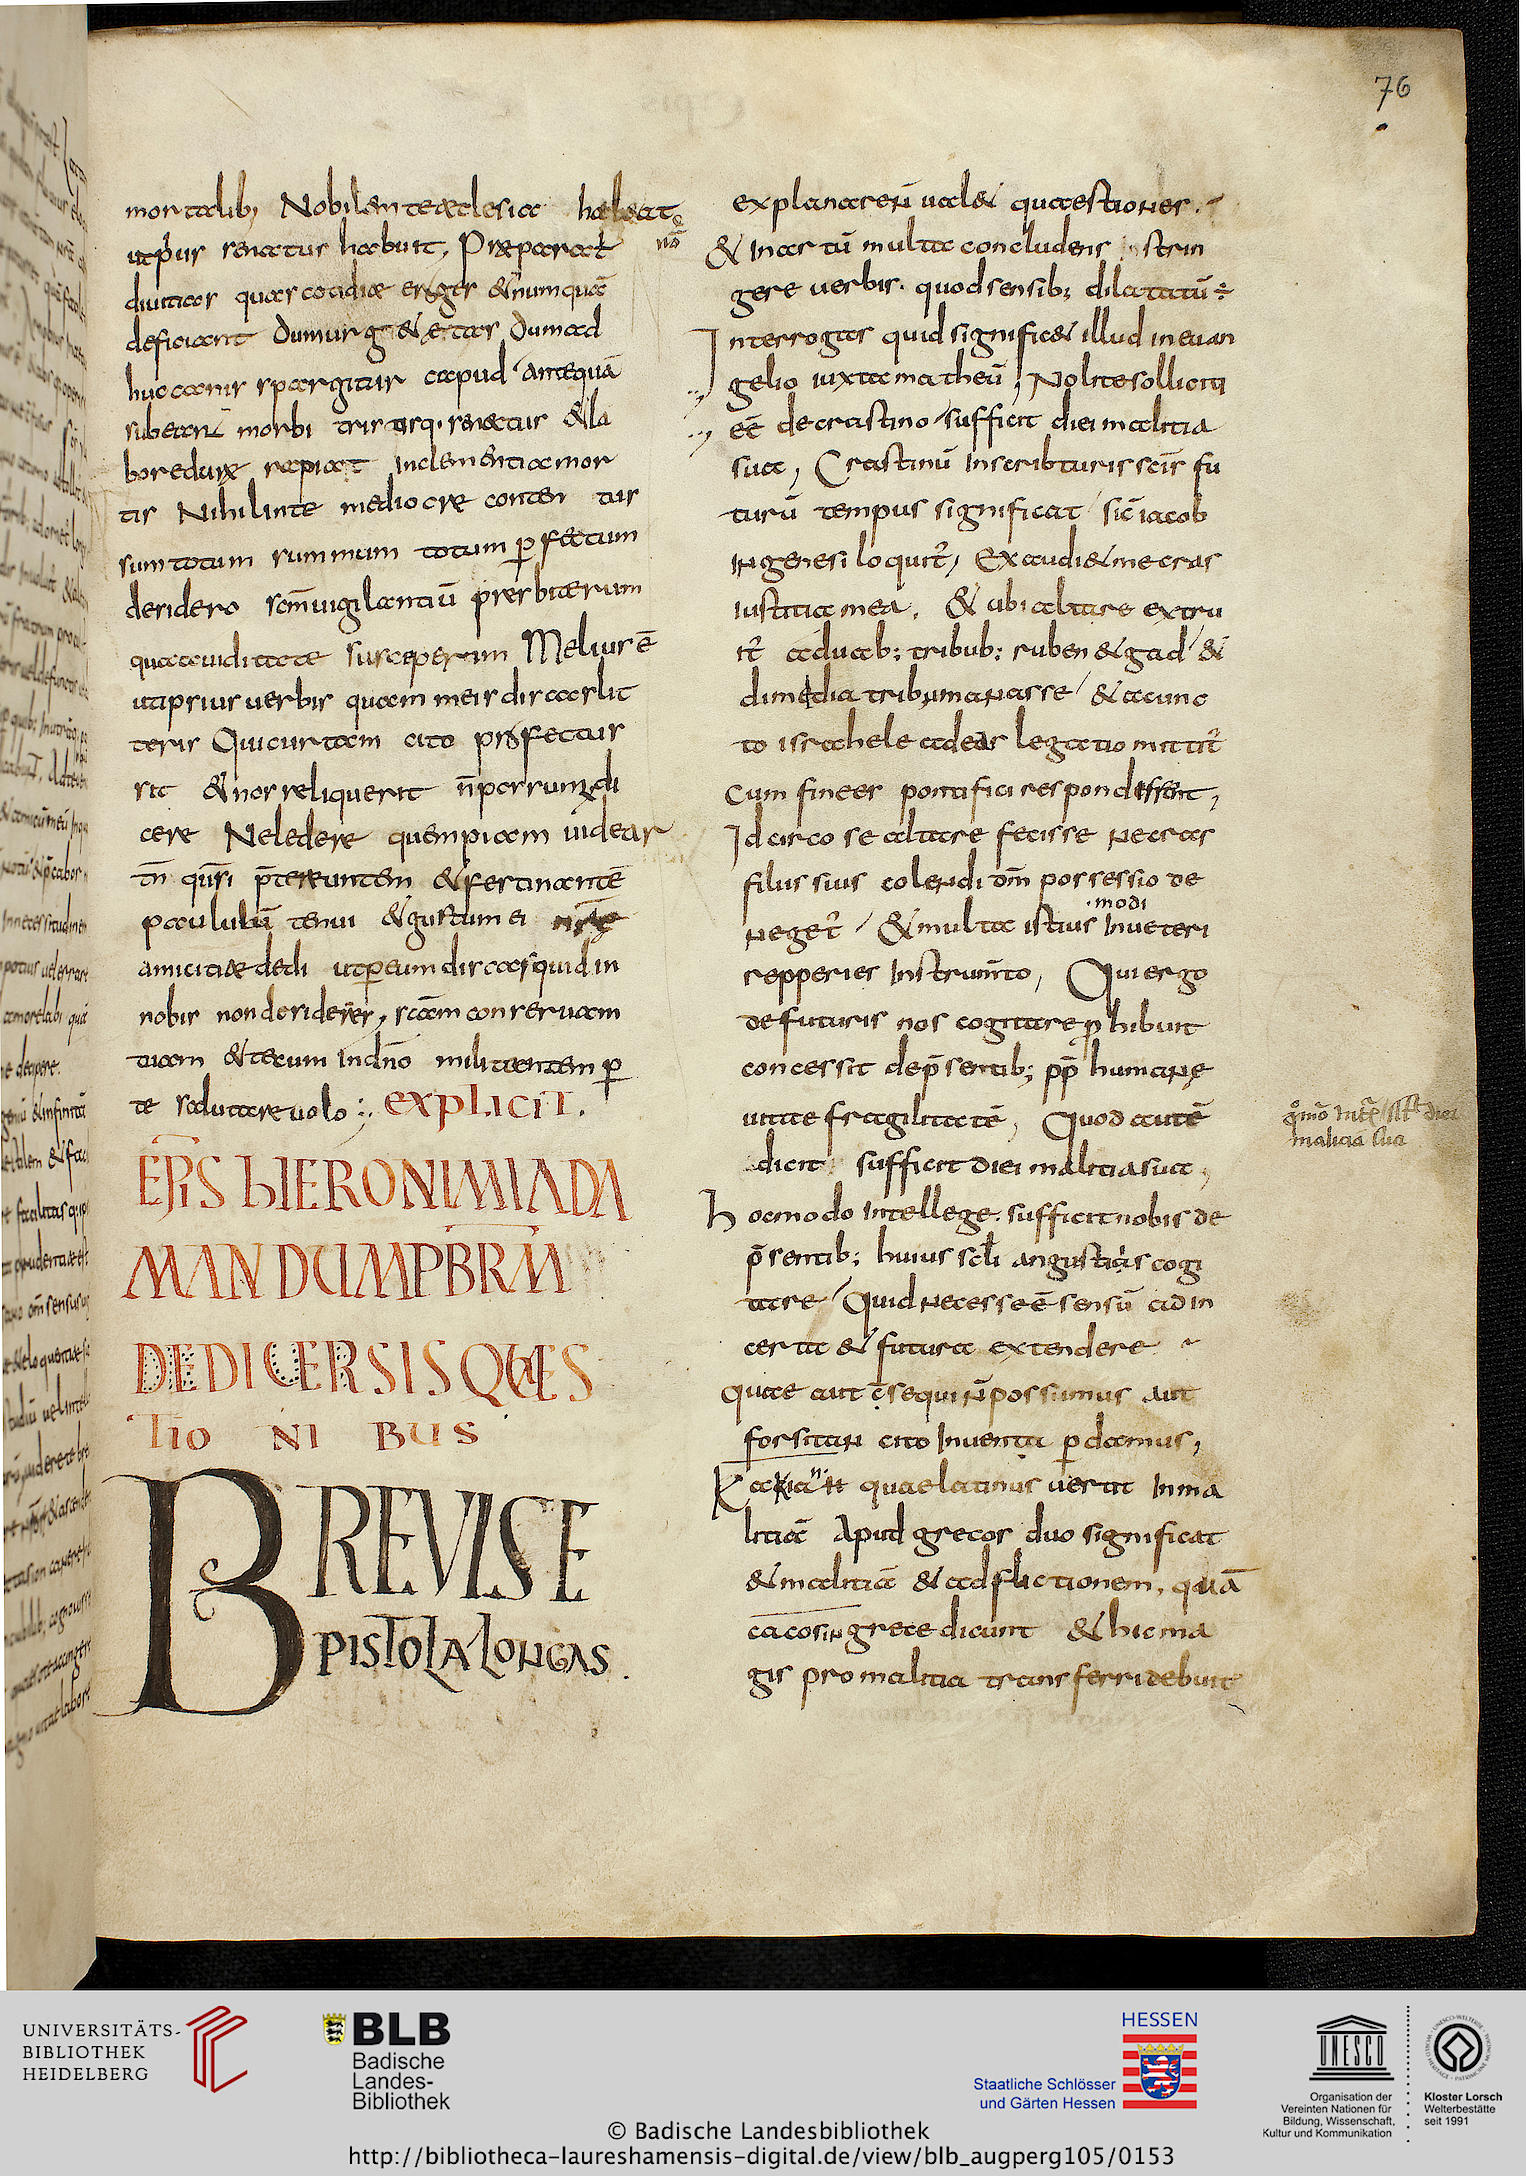 76
mortalib; Nobilem te æclesia habeat
ut prius senatus habuit, Præparat
nō
diuitias quas cotidiæ eriges & numquā
deficiant dum uiget ætas dum ad
huc canis spargitur capud antequā
subeant morbi tristisq; senectus & la
bor & duræ rapiat inclementia mor
tis Nihil in te mediocre conten tus
sum totum summum totum perfectum
desidero scm̄ uigilantiū presbiterum
qua auiditate susceperim Melius ē
ut ipsius uerbis quam meis discas lit
teris Qui cur tam cito profectus
sit & nos reliquerit n̄ possum di
cere Ne ledere quempiam uidear
tn̄ quasi p̄tereuntem & festinantē
paululum tenui & gustum ei nr̄ae
amicitiæ dedi ut p eum discas quid in
nobis non desideres, scām conseruam
tuam & tecum in dn̄o militantem p
te salutare uolo :, explicit.
EPIS hIERONIMI AD A
MANDUM PBRM
DE DIUERSIS QUÆS
TIONIBUS
BREUIS E
PISTOLA LONGAS.
explanare n̄ ual& quaestiones.
& in artū multa concludens strin
gere uerbis. quod sensib; dilatatū ÷
Interrogas quid signific& illud in euan
gelio iuxta matheū, Nolite solliciti
eē de crastino sufficit diei malitia
sua, Crastinū in scribturis scis fu
turū tempus significat sic iacob
in genesi loquit̄, Exaudi & me cras
iustitia mea, & ubi altare extru
it̄ a duab; tribub; ruben & gad &
dimedia tribu manasse & a cunc
to israhele ad eas legatio mittit̄
Cum finees pontifici respondissent,
Idcirco se altare fecisse ne cras
filiis suis colendi dm̄ possessio de
neget̄ & multa istius modi in ueteri
repperies instrum̄to, Qui ergo
de futuris nos cogitare p hibuit
concessit de p̄sentib; pp̄ humane
uitae fragilitatē, Quod autē
dicit sufficit diei malitia sua,
hoc modo intellege. sufficit nobis de
p̄sentib; huius scl̄i angustiis cogi
tare Quid necesse ē sensū ad in
certa & futura extendere
quae aut c̄sequi n̄ possumus aut
forsitan cito inuenta p damus,
quae latinus uertit in ma
litiā Apud grecos duo significat
& malitiā & adflictionem, quā
cacosin grece dicunt & hic ma
gis pro malitia transferri debuit
malicia sua
UNIVERSITÄTS-
BIBLIOTHEK
HEIDELBERG
BLB
Badische
Landes-
Bibliothek
HESSEN
Staatliche Schlösser
und Gärten Hessen
UNESCO
Organisation der
Vereinten Nationen für
Bildung, Wissenschaft,
Kultur und Kommunikation
Kloster Lorsch
Welterbestätte
seit 1991
© Badische Landesbibliothek
http://bibliotheca-laureshamensis-digital.de/view/blb_augperg105/0153